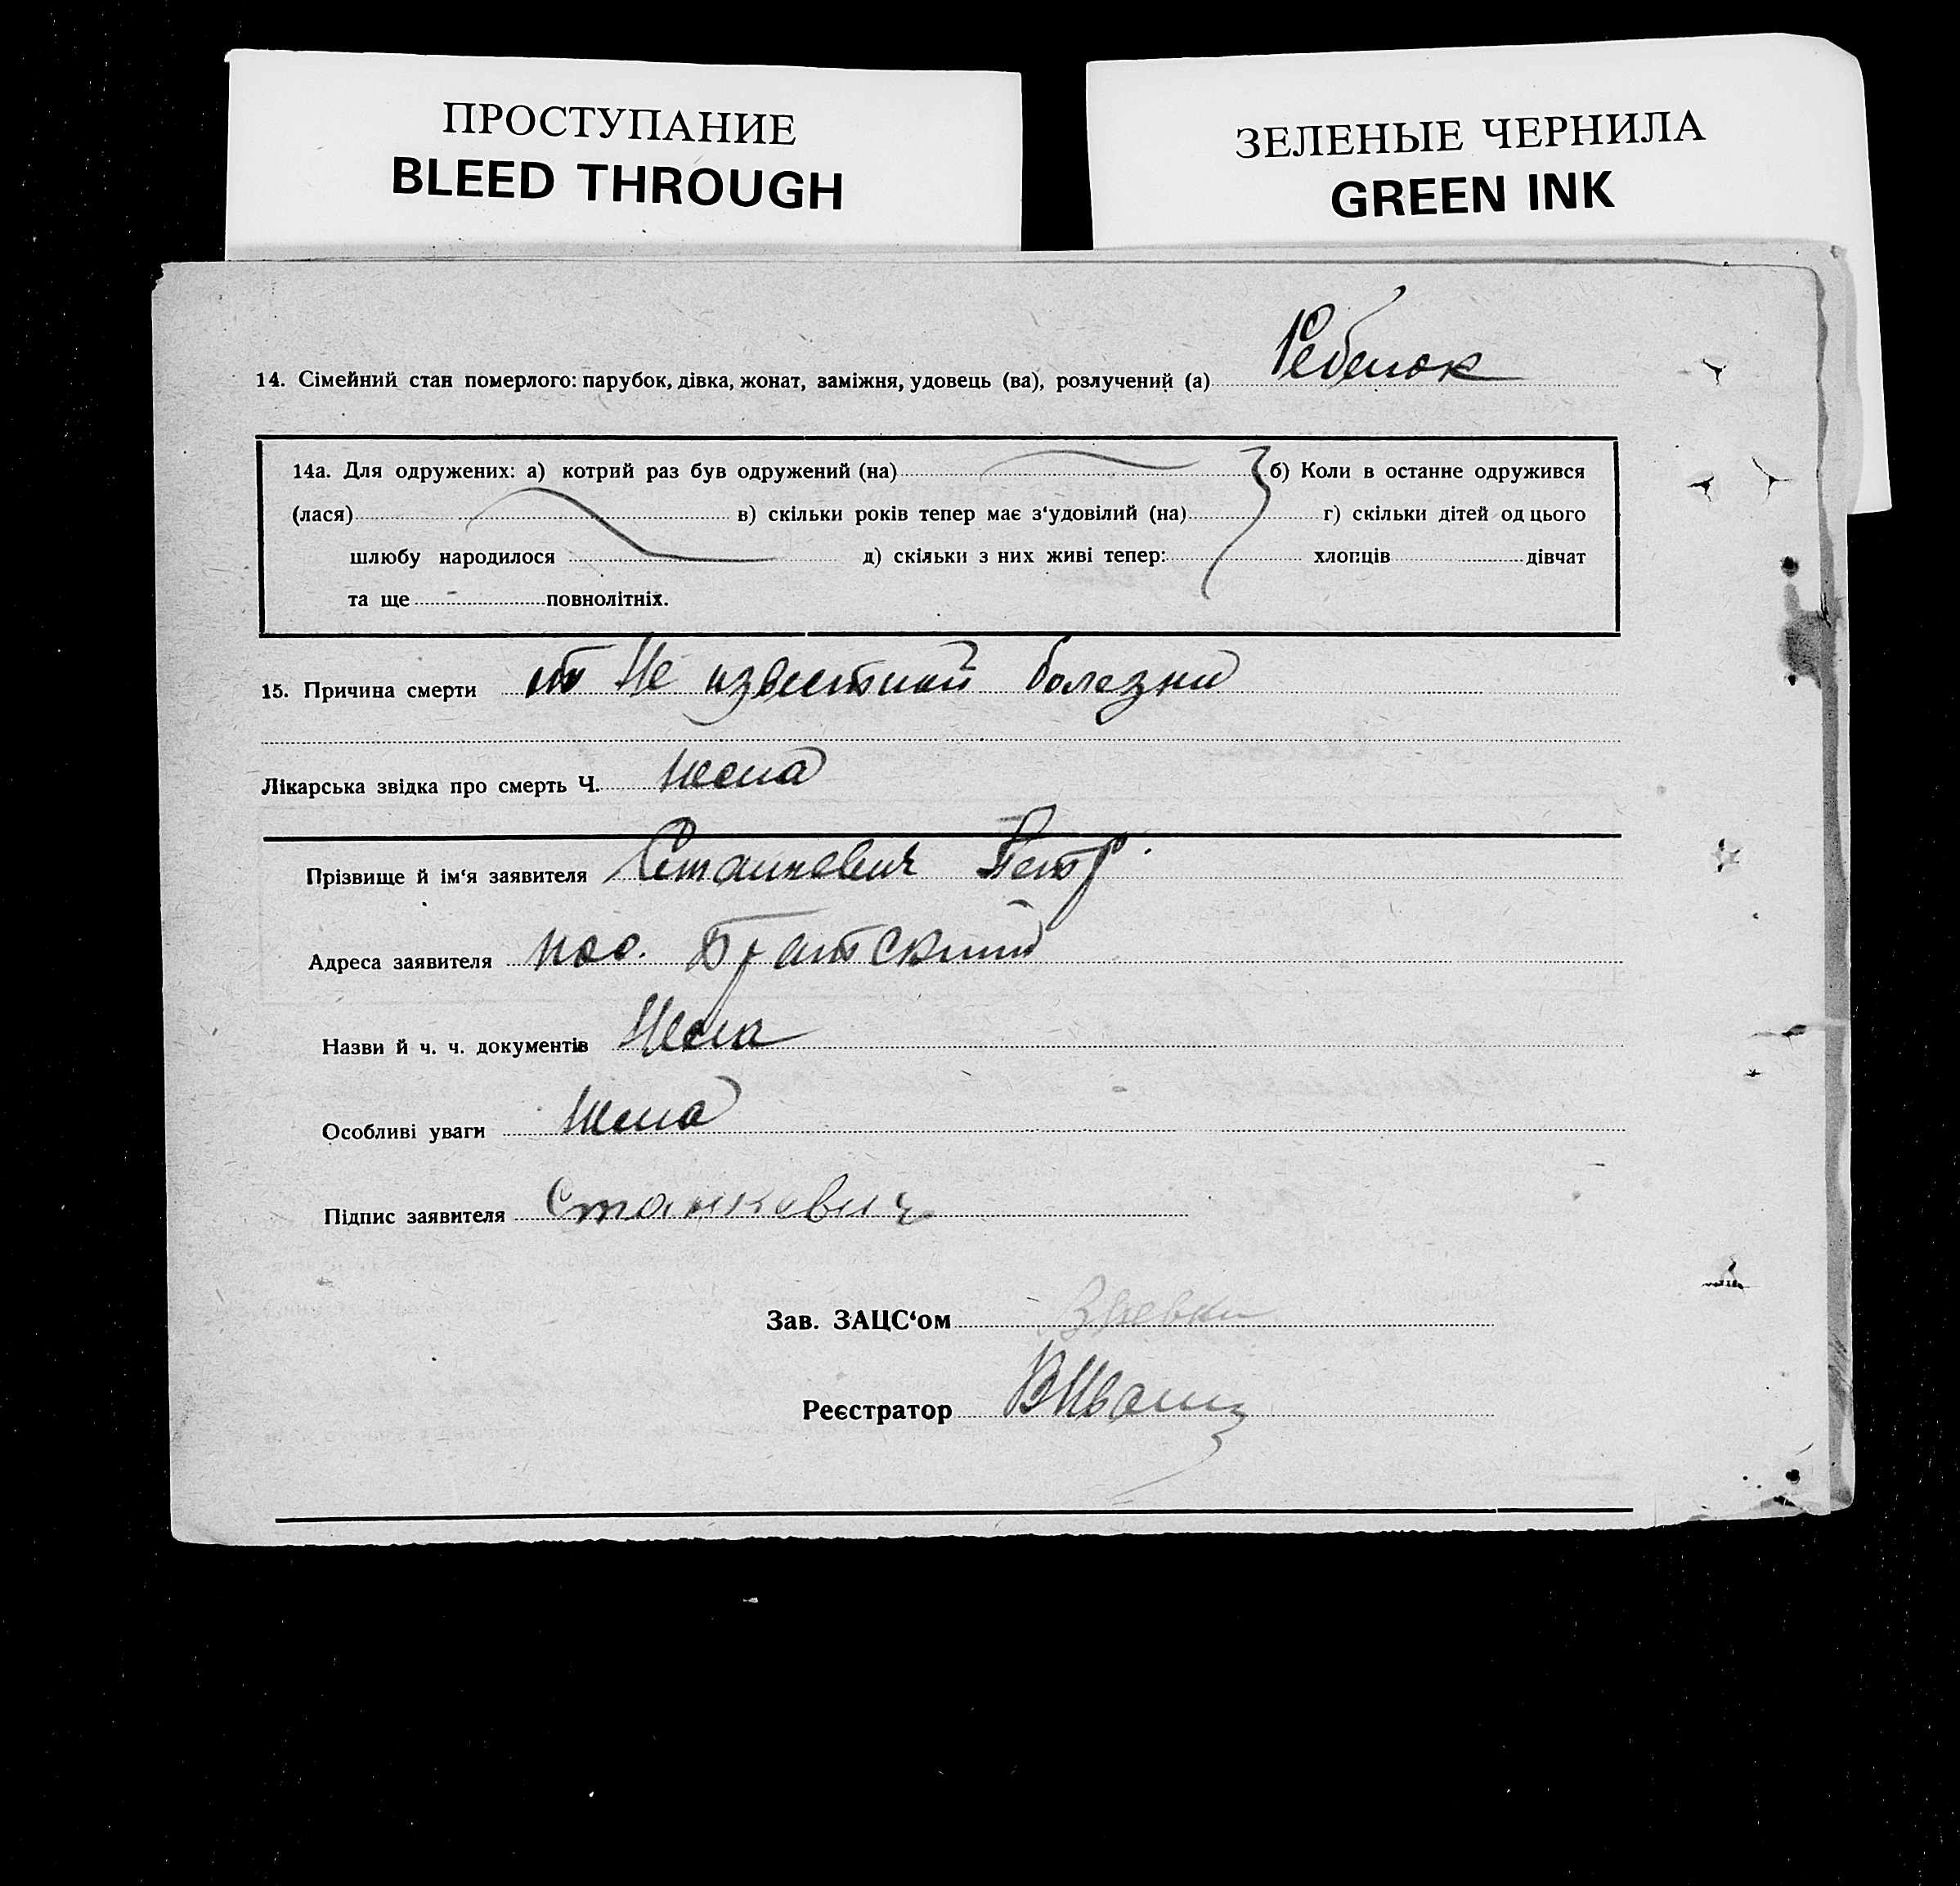 ПРОСТУПАНИЕ
BLEED THROUGH
ЗЕЛЕНЫЕ ЧЕРНИЛА
GREEN INK
14. Сімейний стан померлого: парубок, дівка, жонат, заміжня, удовець (ва), розлучений (а) Ребенок
14а. Для одружених: а) котрий раз був одружений (на) б) Коли в останне одружився
(лася) в) скільки років тепер має з‘удовілий (на) г) скільки дітей од цього
шлюбу народилося д) скільки з них живі тепер: хлопців дівчат
та ще повнолітніх.
15. Причина смерти от Не известной болезни
Лікарська звідка про смерть Ч. Нема
Прізвище й ім‘я заявителя Станкевич Петр
Адреса заявителя пос. Братский
Назви й ч. ч. документів Нема
Особливі уваги Нема
Підпис заявителя Станкевич
Зав. ЗАЦС‘ом
Реєстратор